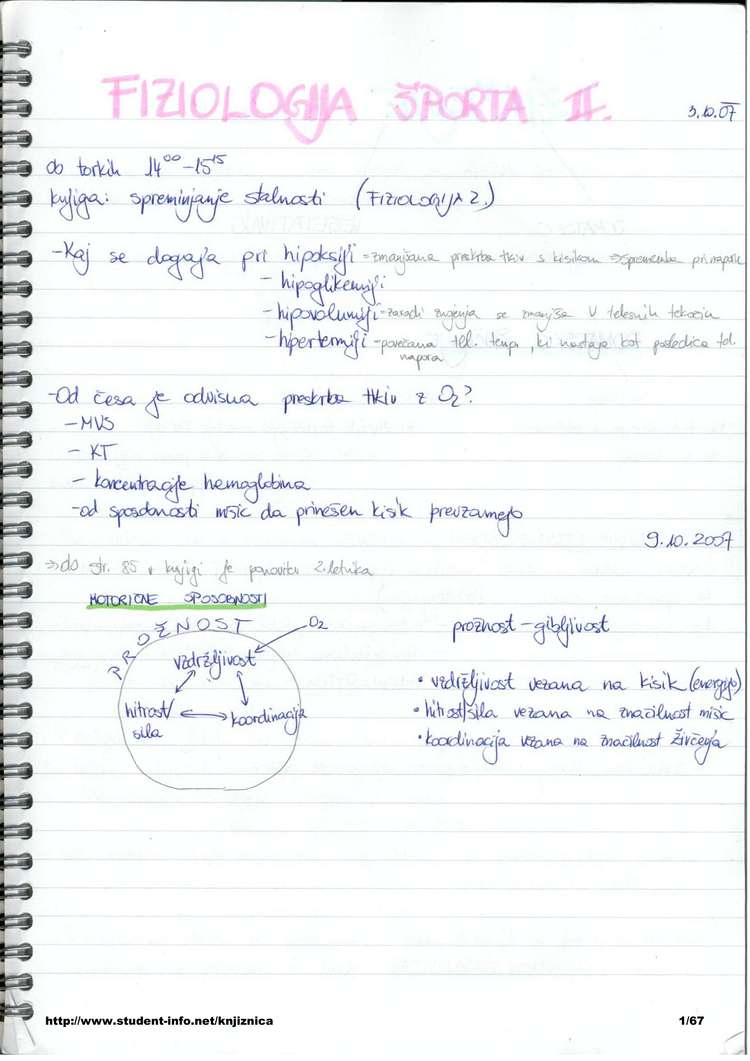 FIZIOLOGIJA ŠPORTA II.
3.10.07
ob torkih 14⁰⁰-15¹⁵
knjiga: spreminjanje stalnosti (FIZIOLOGIJA 2.)
-Kaj se dogaja pri hipoksiji =zmanjšana preskrba tkiv s kisikom ⇒sprememba pri naporu
- hipoglikemiji
- hipovolumiji -zaradi znojenja se zmanjša V telesnih tekočin
- hipertermiji -povečana tel. temp., ki nastaja kot posledica tel.
napora
-Od česa je odvisna preskrba tkiv z O₂?
- MVS
- KT
- koncentracije hemoglobina
-od sposobnosti mišic da prinešen kisik prevzamejo
9.10.2007
⇒do str. 85 v knjigi je ponovitev 2.letnika
MOTORIČNE SPOSOBNOSTI
PROŽNOST
O₂
vzdržljivost
hitrost/
sila
koordinacija
prožnost - gibljivost
• vzdržljivost vezana na kisik (energijo)
• hitrost/sila vezana na značilnost mišic
• koordinacija vezana na značilnost živčevja
http://www.student-info.net/knjiznica
1/67